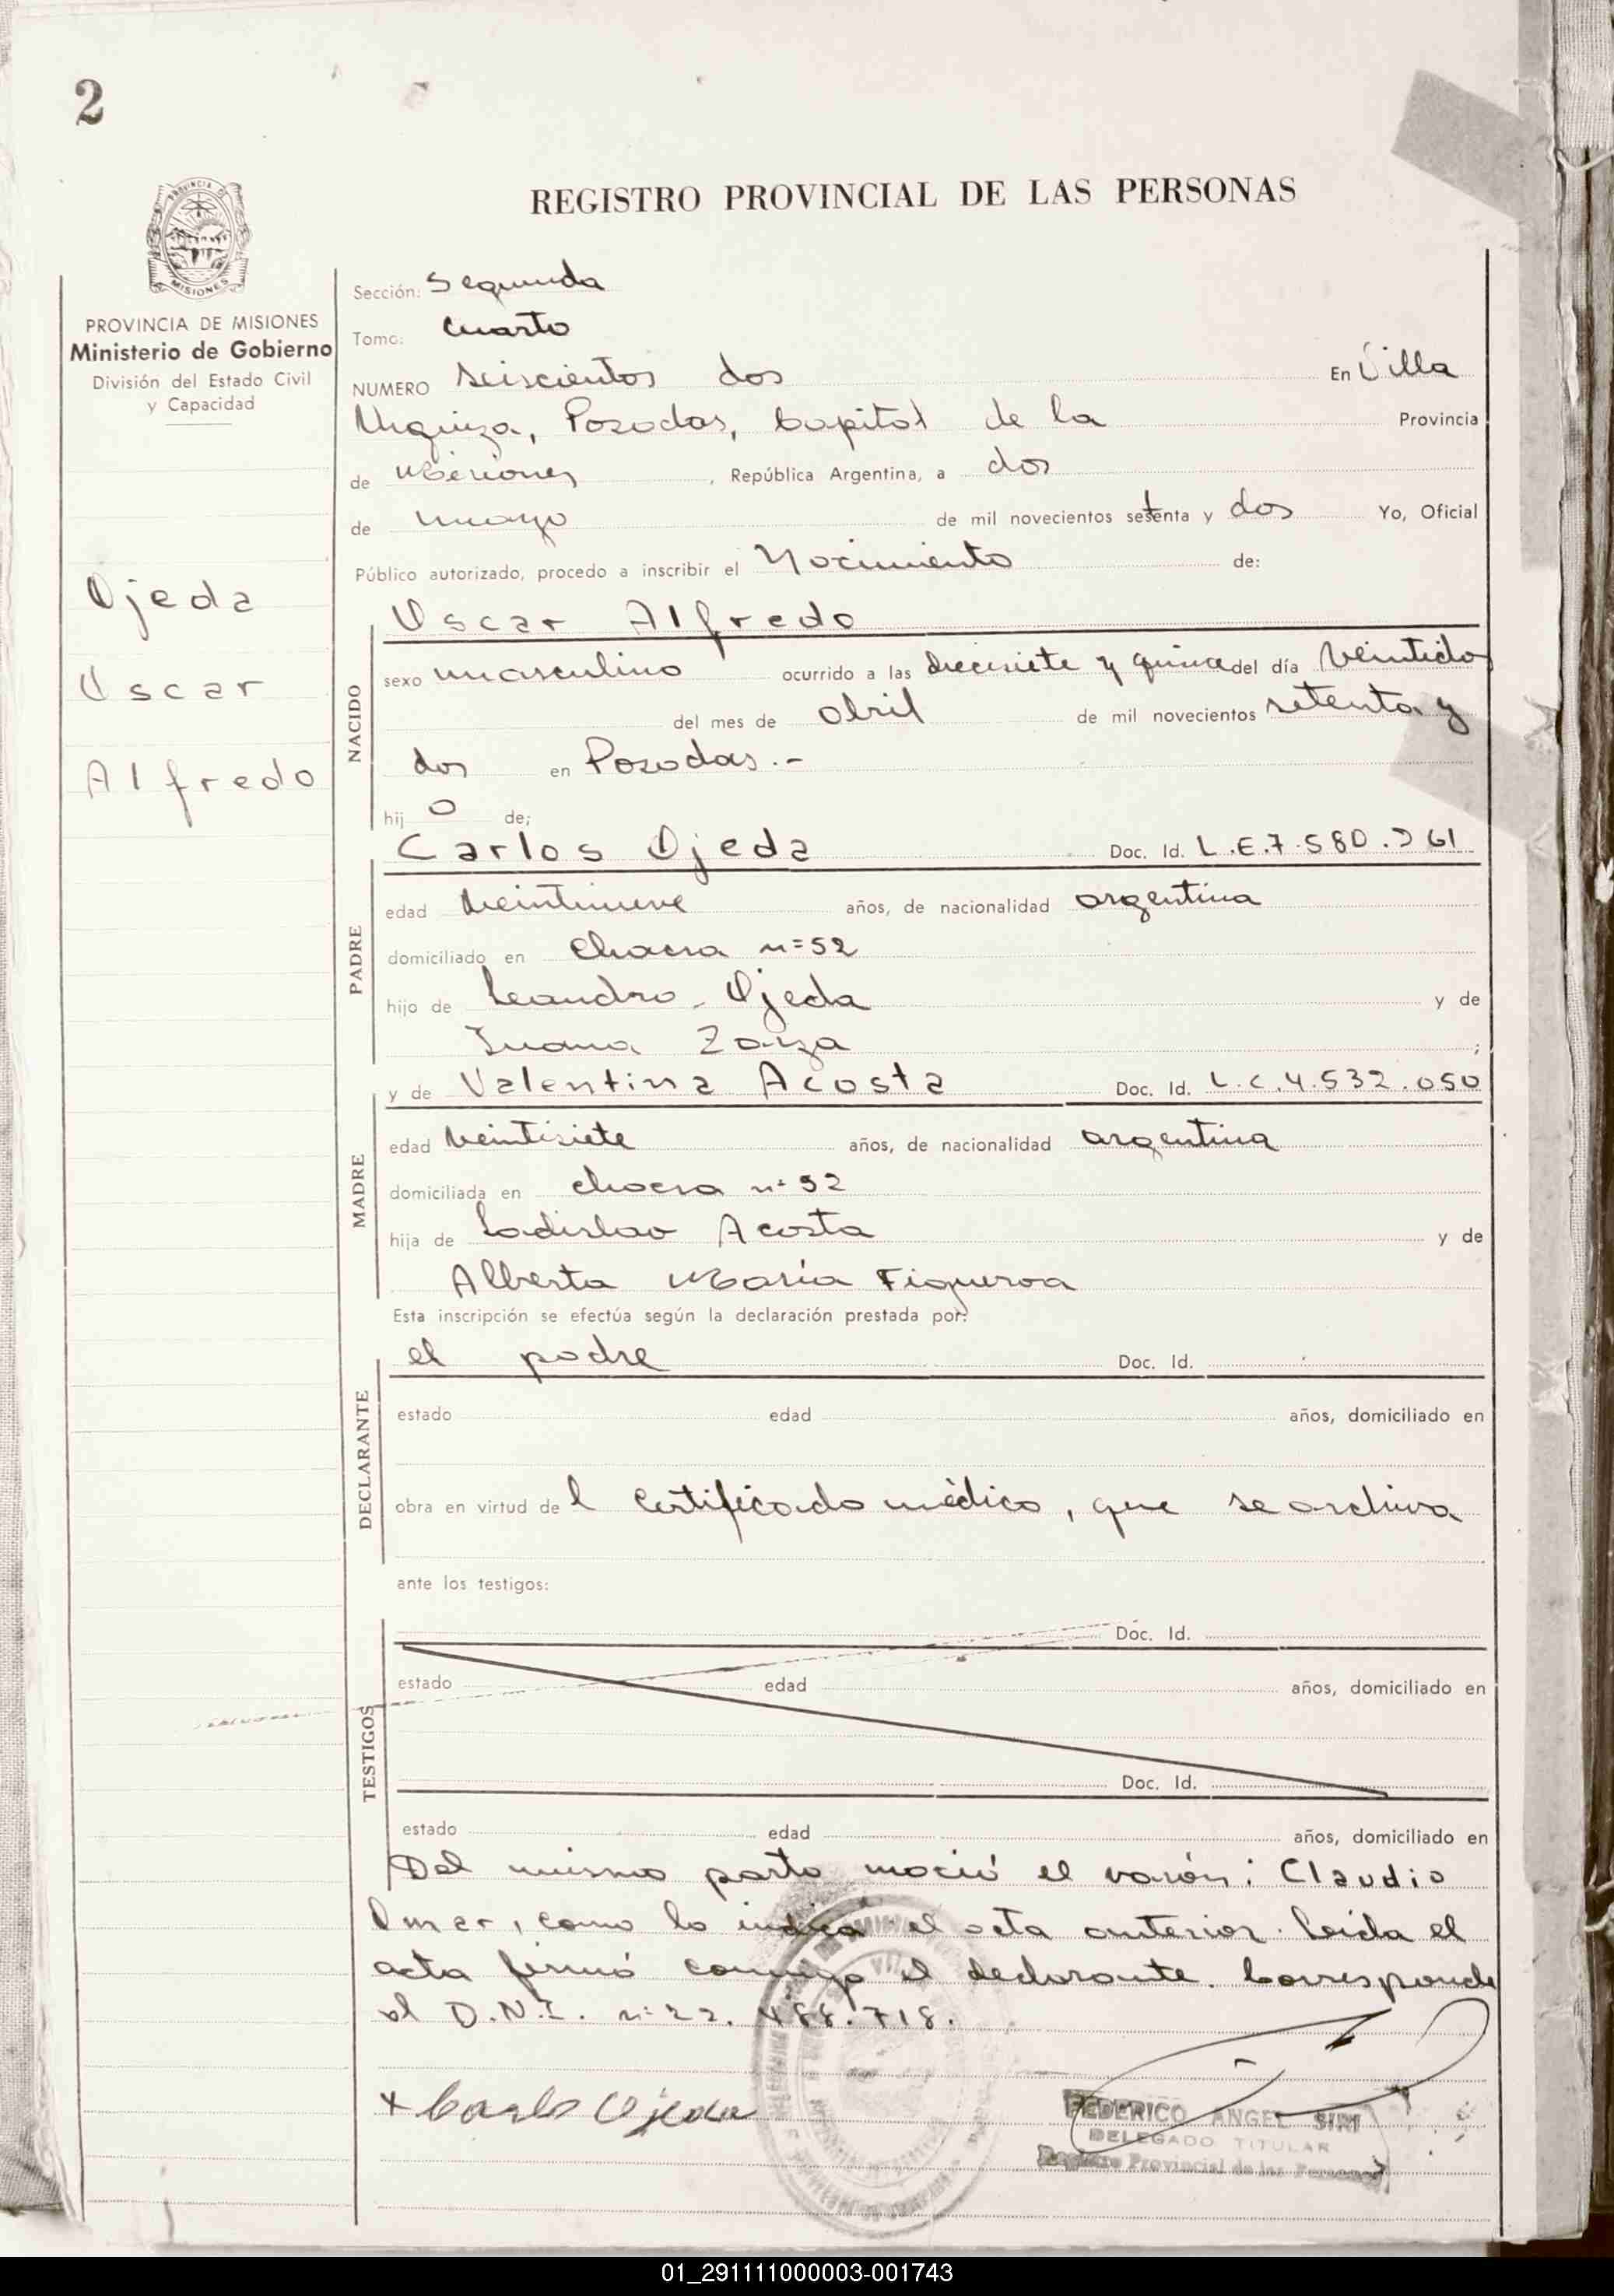 2
REGISTRO PROVINCIAL DE LAS PERSONAS
PROVINCIA DE MISIONES
Ministerio de Gobierno
División del Estado Civil
y Capacidad
Ojeda
Oscar
Alfredo
Sección: Segunda
Tomo: Cuarto
NUMERO Seiscientos dos En Villa
Urquiza, Posadas, Capital de la Provincia
de Misiones, República Argentina, a dos
de mayo de mil novecientos setenta y dos Yo, Oficial
Público autorizado, procedo a inscribir el Nacimiento de:
Oscar Alfredo
NACIDO
sexo masculino ocurrido a las diecisiete y quince del día veintidos
del mes de abril de mil novecientos setenta y
dos en Posadas.-
hij o de;
Carlos Ojeda Doc. Id. L.E.7.580.261
PADRE
edad veintinueve años, de nacionalidad argentina
domiciliado en chacra n=52
hijo de Leandro Ojeda y de
Juana Zarza ;
y de Valentina Acosta Doc. Id. L.C.4.532.050
MADRE
edad veintisiete años, de nacionalidad argentina
domiciliada en chacra n=52
hija de Ladislao Acosta y de
Alberta María Figueroa
Esta inscripción se efectúa según la declaración prestada por:
el padre Doc. Id.
DECLARANTE
estado edad años, domiciliado en
obra en virtud de l certificado médico, que se archiva
ante los testigos:
Doc. Id.
TESTIGOS
estado edad años, domiciliado en
Doc. Id.
estado edad años, domiciliado en
Del mismo parto nació el varón: Claudio
Omar, como lo indica el acta anterior. Leída el
acta firmó conmigo el declarante. Corresponde
al D.N.I. n=22.488.718.
x Carlos Ojeda
FEDERICO ANGEL SIRI
DELEGADO TITULAR
Registro Provincial de las Personas
01_291111000003-001743